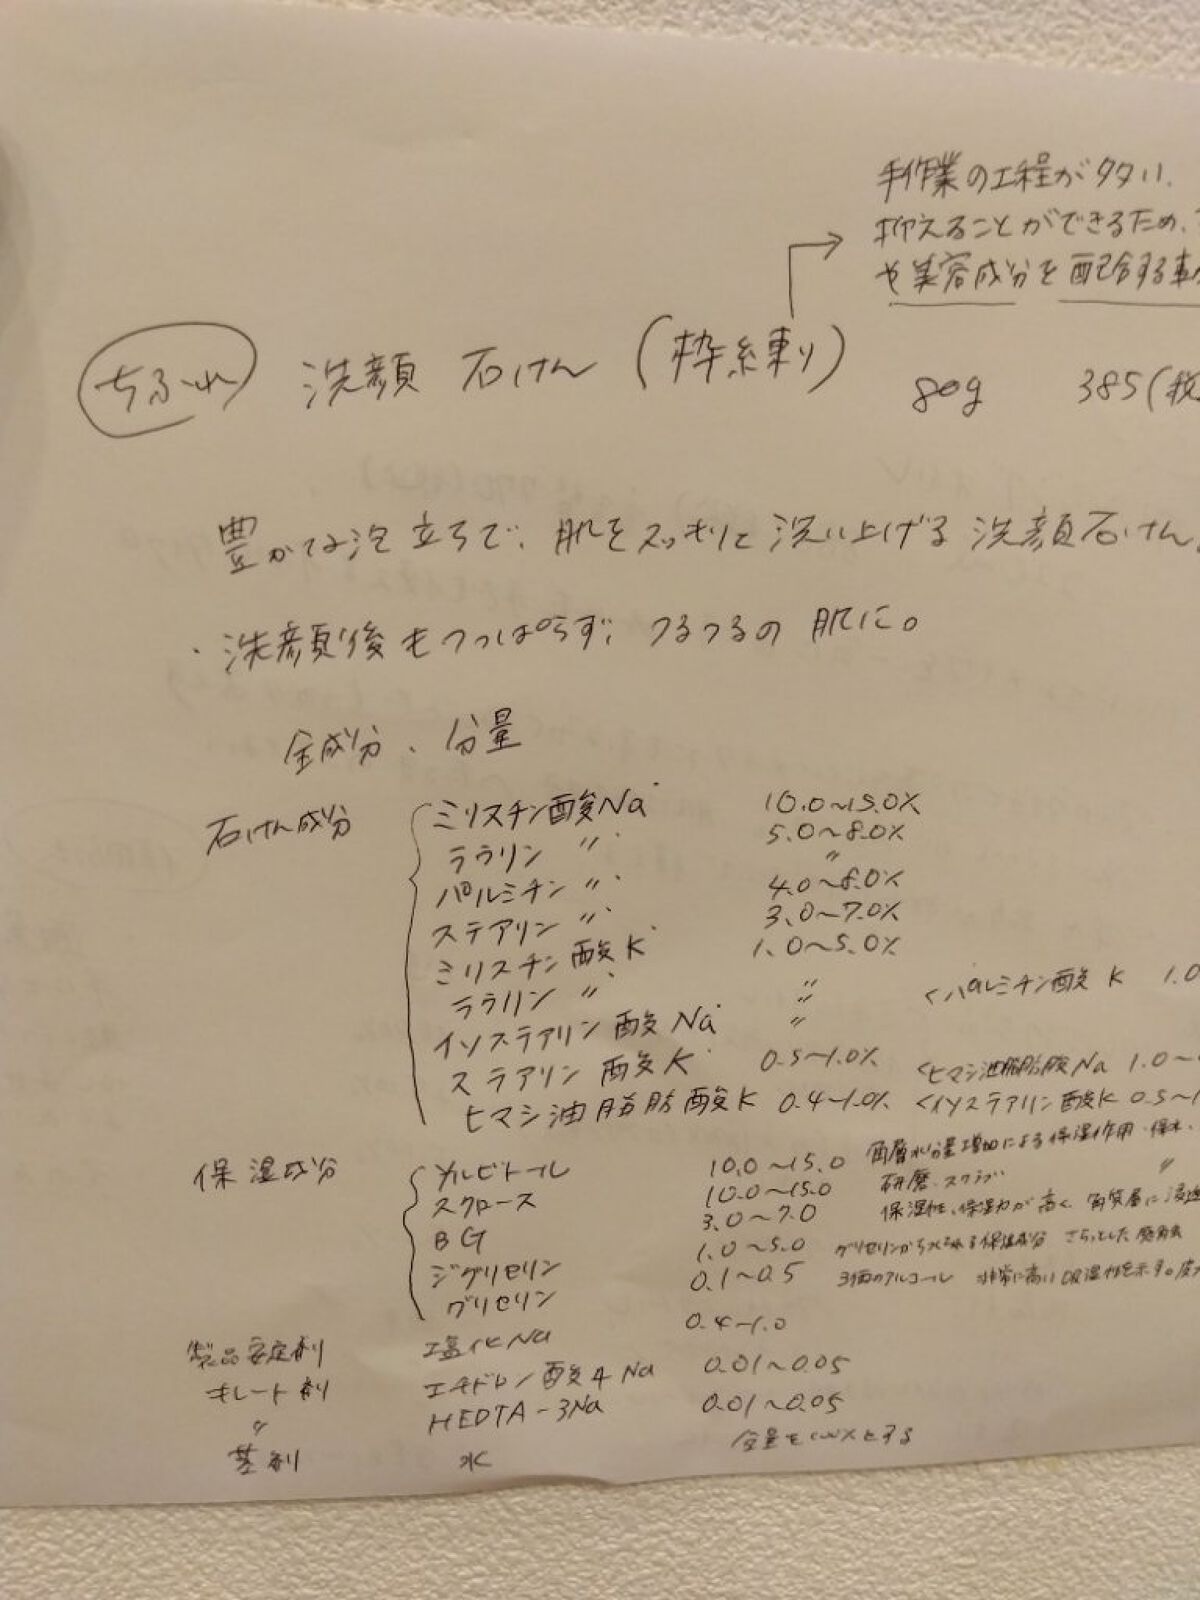 手作業の工程が多い、
抑えることができるため、
や美容成分を配合する事が
ちふれ 洗顔 石けん (枠練り) 80g 385(税
豊かな泡立ちで、肌をスッキリと洗い上げる洗顔石けん。
・洗顔後もつっぱらず、つるつるの肌に。
全成分、分量
石けん成分 ミリスチン酸Na 10.0~15.0%
ラウリン 〃 5.0~8.0%
パルミチン 〃 〃
ステアリン 〃 4.0~8.0%
ミリスチン酸K 3.0~7.0%
ラウリン 〃 1.0~5.0%
イソステアリン酸Na 〃 <パルミチン酸 K 1.0
ステアリン酸K 〃
0.5~1.0% <ヒマシ油脂肪酸Na 1.0~
ヒマシ油脂肪酸K 0.4~1.0% <イソステアリン酸K 0.5~1
保湿成分 ソルビトール 10.0~15.0 角層水分量増加による保湿作用・保水・
スクロース 10.0~15.0 研磨.スクラブ 〃
BG 3.0~7.0 保湿性、保湿力が高く、角質層に浸
ジグリセリン 1.0~5.0 グリセリンから 保湿成分 さらっとした
グリセリン 0.1~0.5 3価のアルコール 非常に高い吸湿性を示す。
製品安定剤 塩化Na 0.4~1.0
キレート剤 エチドロン酸4Na 0.01~0.05
〃 HEDTA-3Na 0.01~0.05
基剤 水 全量を100%とする